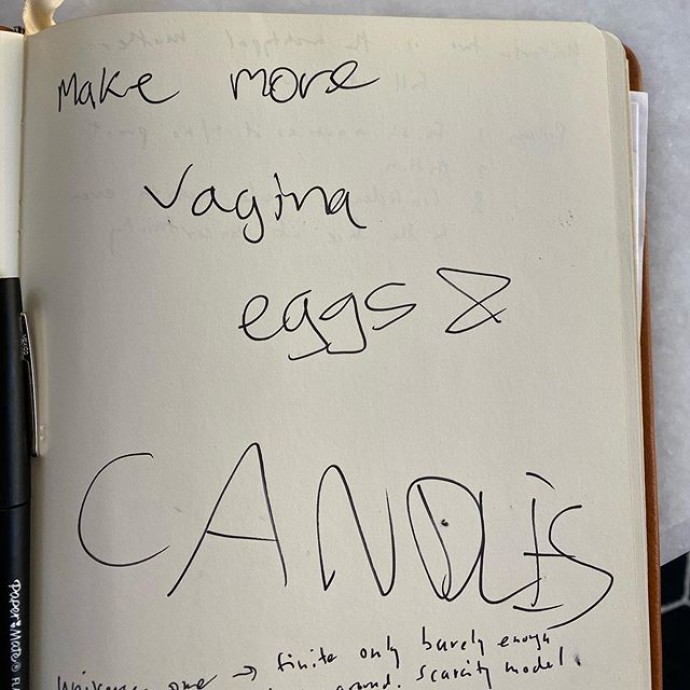 Make more
vagina
eggs &
CANDLES
universe one → finite only barely enough
around. scarcity model.
Paper:Mate® FL
MEXICO